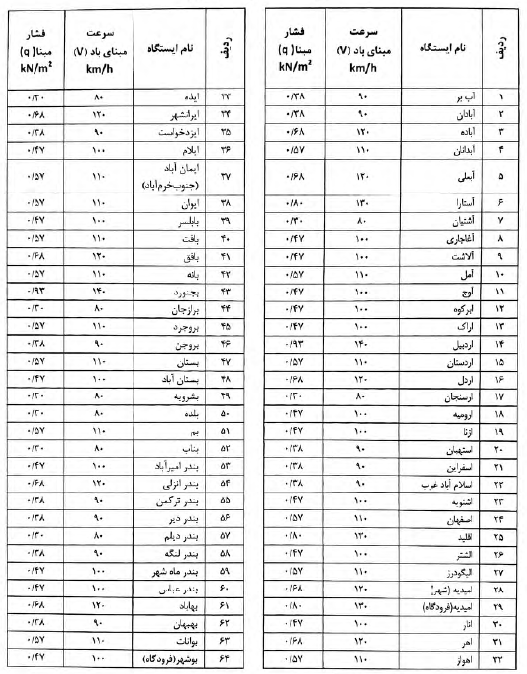 ردیف
نام ایستگاه
سرعت
مبنای باد (V)
km/h
فشار
مبنا(q)
kN/m²
۱ آب بر ۹۰ ۰/۳۸
۲ آبادان ۹۰ ۰/۳۸
۳ آباده ۱۲۰ ۰/۶۸
۴ آبدانان ۱۱۰ ۰/۵۷
۵ آبعلی ۱۲۰ ۰/۶۸
۶ آستارا ۱۳۰ ۰/۸۰
۷ آشتیان ۸۰ ۰/۳۰
۸ آغاجاری ۱۰۰ ۰/۴۷
۹ آلاشت ۱۰۰ ۰/۴۷
۱۰ آمل ۱۱۰ ۰/۵۷
۱۱ آوج ۱۰۰ ۰/۴۷
۱۲ ابرکوه ۱۰۰ ۰/۴۷
۱۳ اراک ۱۰۰ ۰/۴۷
۱۴ اردبیل ۱۴۰ ۰/۹۳
۱۵ اردستان ۱۱۰ ۰/۵۷
۱۶ اردل ۱۲۰ ۰/۶۸
۱۷ ارسنجان ۸۰ ۰/۳۰
۱۸ ارومیه ۱۰۰ ۰/۴۷
۱۹ ازنا ۱۰۰ ۰/۴۷
۲۰ استهبان ۹۰ ۰/۳۸
۲۱ اسفراین ۹۰ ۰/۳۸
۲۲ اسلام آباد غرب ۹۰ ۰/۳۸
۲۳ اشنویه ۱۰۰ ۰/۴۷
۲۴ اصفهان ۱۱۰ ۰/۵۷
۲۵ اقلید ۱۳۰ ۰/۸۰
۲۶ الشتر ۱۰۰ ۰/۴۷
۲۷ الیگودرز ۱۱۰ ۰/۵۷
۲۸ امیدیه (شهر) ۱۲۰ ۰/۶۸
۲۹ امیدیه(فرودگاه) ۱۳۰ ۰/۸۰
۳۰ انار ۱۰۰ ۰/۴۷
۳۱ اهر ۱۲۰ ۰/۶۸
۳۲ اهواز ۱۱۰ ۰/۵۷
ردیف
نام ایستگاه
سرعت
مبنای باد (V)
km/h
فشار
مبنا(q)
kN/m²
۳۳ ایذه ۸۰ ۰/۳۰
۳۴ ایرانشهر ۱۲۰ ۰/۶۸
۳۵ ایزدخواست ۹۰ ۰/۳۸
۳۶ ایلام ۱۰۰ ۰/۴۷
۳۷ ایمان آباد
(جنوب‌خرم‌آباد) ۱۱۰ ۰/۵۷
۳۸ ایوان ۱۱۰ ۰/۵۷
۳۹ بابلسر ۱۰۰ ۰/۴۷
۴۰ بافت ۱۱۰ ۰/۵۷
۴۱ بافق ۱۲۰ ۰/۶۸
۴۲ بانه ۱۱۰ ۰/۵۷
۴۳ بجنورد ۱۴۰ ۰/۹۳
۴۴ برازجان ۸۰ ۰/۳۰
۴۵ بروجرد ۱۱۰ ۰/۵۷
۴۶ بروجن ۹۰ ۰/۳۸
۴۷ بستان ۱۱۰ ۰/۵۷
۴۸ بستان آباد ۱۰۰ ۰/۴۷
۴۹ بشرویه ۸۰ ۰/۳۰
۵۰ بلده ۸۰ ۰/۳۰
۵۱ بم ۱۱۰ ۰/۵۷
۵۲ بناب ۸۰ ۰/۳۰
۵۳ بندر امیرآباد ۱۰۰ ۰/۴۷
۵۴ بندر انزلی ۱۲۰ ۰/۶۸
۵۵ بندر ترکمن ۹۰ ۰/۳۸
۵۶ بندر دیر ۹۰ ۰/۳۸
۵۷ بندر دیلم ۸۰ ۰/۳۰
۵۸ بندر لنگه ۹۰ ۰/۳۸
۵۹ بندر ماه شهر ۱۰۰ ۰/۴۷
۶۰ بندر عباس ۱۰۰ ۰/۴۷
۶۱ بهاباد ۱۲۰ ۰/۶۸
۶۲ بهبهان ۹۰ ۰/۳۸
۶۳ بوانات ۱۱۰ ۰/۵۷
۶۴ بوشهر(فرودگاه) ۱۰۰ ۰/۴۷